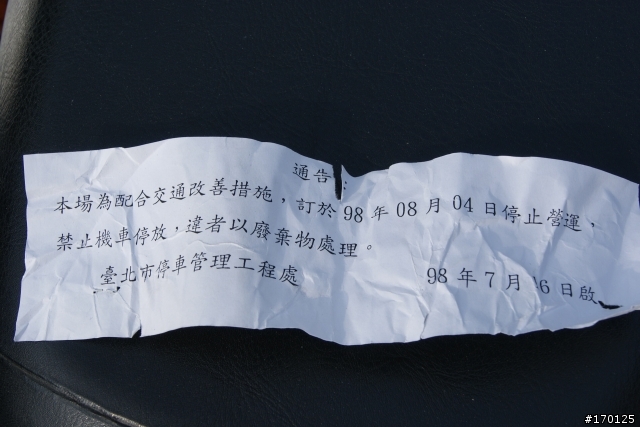 通告：
本場為配合交通改善措施，訂於98年08月04日停止營運，
禁止機車停放，違者以廢棄物處理。
臺北市停車管理工程處 98年7月16日啟
#170125